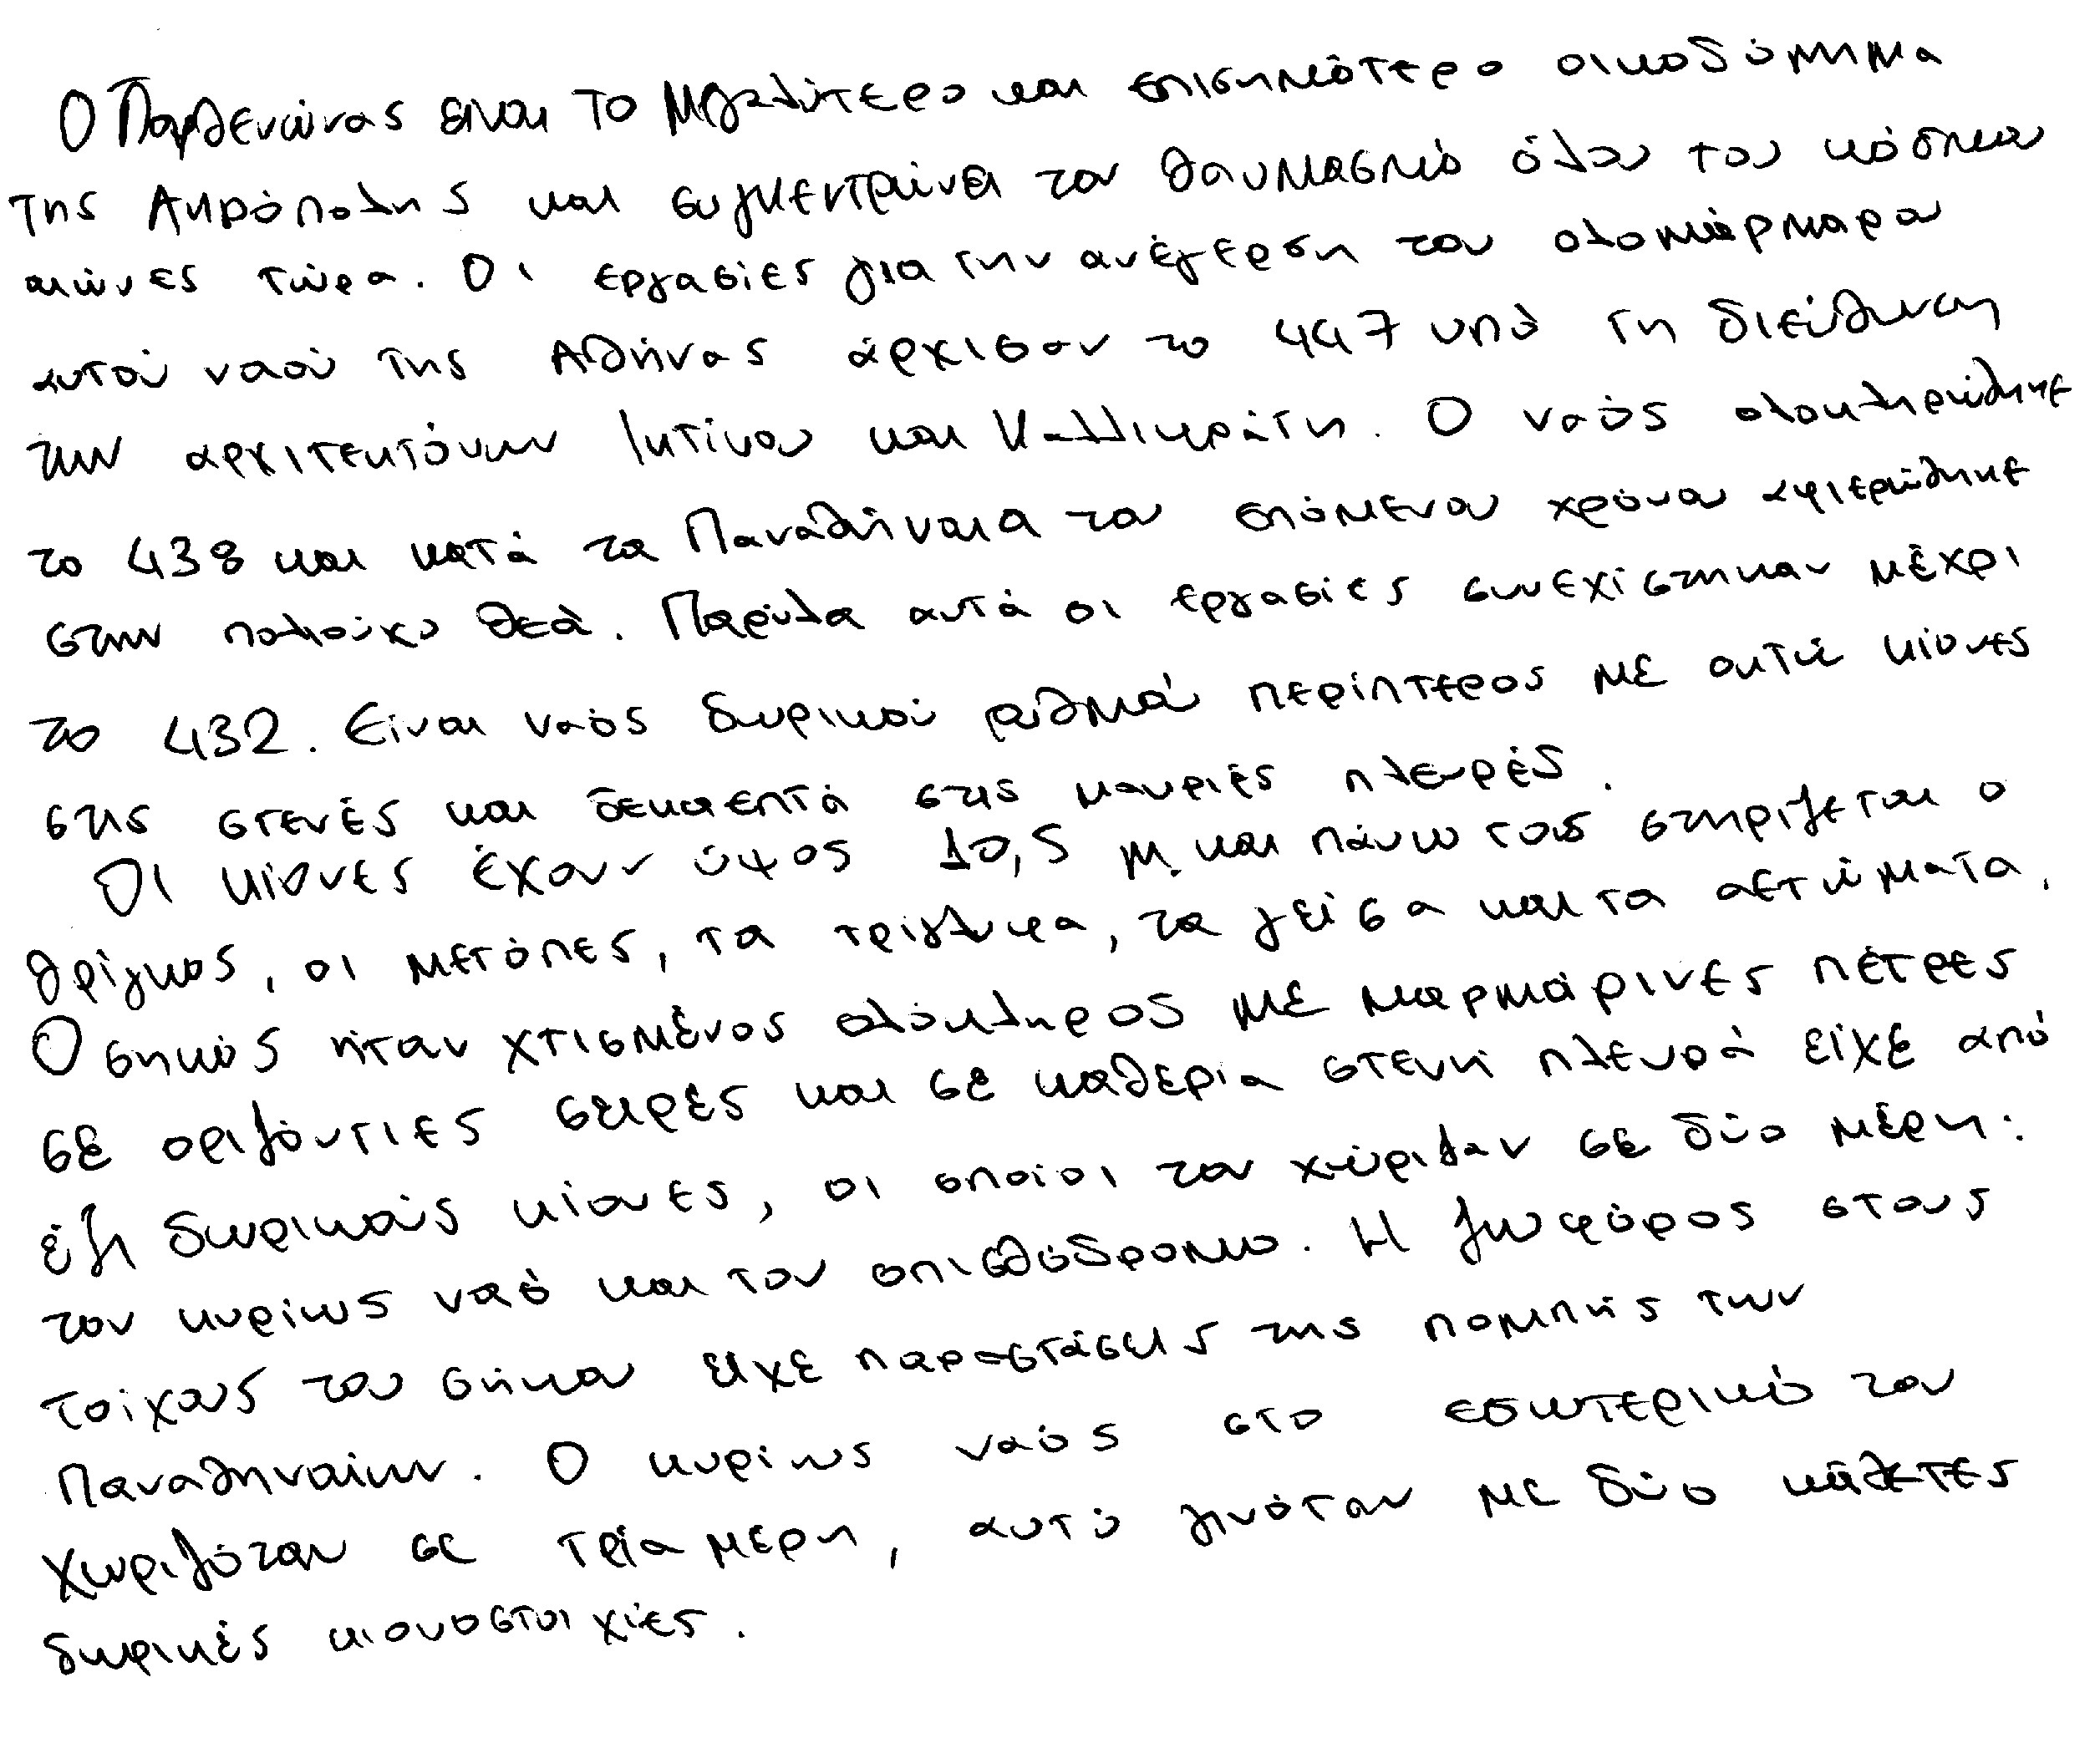 Ο Παρθενώνας είναι το μεγαλύτερο και επισημότερο οικοδόμημα
της Ακρόπολης και συγκεντρώνει τον θαυμασμό όλου του κόσμου
αιώνες τώρα. Οι εργασίες για την ανέγερση του ολομάρμαρου
αυτού ναού της Αθήνας άρχισαν το 447 υπό τη διεύθυνση
των αρχιτεκτόνων Ικτίνου και Καλλικράτη. Ο ναός ολοκληρώθηκε
το 438 και κατά τα Παναθήναια του επόμενου χρόνου αφιερώθηκε
στην πολιούχο θεά. Παρόλα αυτά οι εργασίες συνεχίστηκαν μέχρι
το 432. Είναι ναός δωρικού ρυθμού περίπτερος με οκτώ κίονες
στις στενές και δεκαεπτά στις μακριές πλευρές.
Οι κίονες έχουν ύψος 10,5 μ. και πάνω τους στηρίζεται ο
θρίγκος, οι μετόπες, τα τρίγλυφα, τα γείσα και τα αετώματα.
Ο σηκός ήταν χτισμένος ολόκληρος με μαρμάρινες πέτρες
σε οριζόντιες σειρές και σε καθεμία στενή πλευρά είχε από
έξι δωρικούς κίονες, οι οποίοι τον χώριζαν σε δύο μέρη:
τον κυρίως ναό και τον οπισθόδρομο. Η ζωφόρος στους
τοίχους του σήκου είχε παραστάσεις της πομπής των
Παναθηναίων. Ο κυρίως ναός στο εσωτερικό του
χωριζόταν σε τρία μέρη, αυτό γινόταν με δύο κάθετες
δωρικές κιονοστοιχίες.